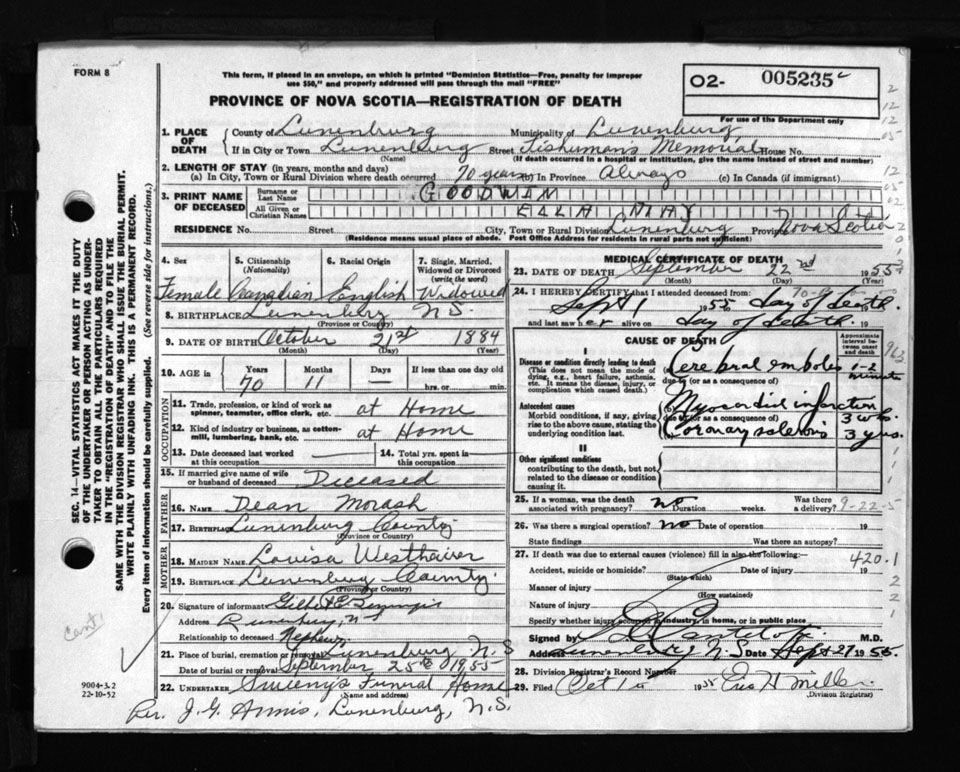 FORM 8
This form, if placed in an envelope, on which is printed "Dominion Statistics—Free, penalty for improper
use $50," and properly addressed will pass through the mail "FREE"
O2- 005235 c
For use of the Department only
PROVINCE OF NOVA SCOTIA—REGISTRATION OF DEATH
1. PLACE OF DEATH
County of Lunenburg Municipality of Lunenburg
If in City or Town Lunenburg Street Fisherman's Memorial House No.
(Name) (If death occurred in a hospital or institution, give the name instead of street and number)
2. LENGTH OF STAY (in years, months and days)
(a) In City, Town or Rural Division where death occurred 70 years (b) In Province Always (c) In Canada (if immigrant)
3. PRINT NAME OF DECEASED
Surname or Last Name GOODWIN
All Given or Christian Names ELLA MAY
RESIDENCE No. Street City, Town or Rural Division Lunenburg Province Nova Scotia
(Residence means usual place of abode. Post Office Address for residents in rural parts not sufficient)
4. Sex Female
5. Citizenship (Nationality) Canadian
6. Racial Origin English
7. Single, Married, Widowed or Divorced (write the word) Widowed
8. BIRTHPLACE Lunenburg N.S.
(Province or Country)
9. DATE OF BIRTH October 21st 1884
(Month) (Day) (Year)
10. AGE in Years 70 Months 11 Days — If less than one day old
hrs. or min.
OCCUPATION
11. Trade, profession, or kind of work as spinner, teamster, office clerk, etc. at Home
12. Kind of industry or business, as cotton-mill, lumbering, bank, etc. at Home
13. Date deceased last worked at this occupation —
14. Total yrs. spent in this occupation —
15. If married give name of wife or husband of deceased Deceased
FATHER
16. NAME Dean Morash
17. BIRTHPLACE Lunenburg County
(Province or Country)
MOTHER
18. MAIDEN NAME Louisa Westhaver
19. BIRTHPLACE Lunenburg County
(Province or Country)
20. Signature of informant Gilbert
Address Lunenburg, N.S.
Relationship to deceased Nephew
21. Place of burial, cremation or removal Lunenburg N.S
Date of burial or removal September 25th 1955
22. UNDERTAKER Sweeny's Funeral Home
(Name and address)
Rev. J. G. Lunenburg, N.S.
MEDICAL CERTIFICATE OF DEATH
23. DATE OF DEATH September 22nd 1955
(Month) (Day)
24. I HEREBY CERTIFY that I attended deceased from
Sept 1 1955 to day of death 19
and last saw her alive on day of death 19
CAUSE OF DEATH
Approximate interval between onset and death
I
Disease or condition directly leading to death
(This does not mean the mode of dying, e.g., heart failure, asthenia, etc. It means the disease, injury, or complication which caused death.)
Cerebral embolus 1-2 minutes
due to (or as a consequence of)
Antecedent causes
Morbid conditions, if any, giving rise to the above cause, stating the underlying condition last.
Myocardial infarction 3 wks.
due to (or as a consequence of)
Coronary sclerosis 3 yrs.
II
Other significant conditions
contributing to the death, but not related to the disease or condition causing it.
25. If a woman, was the death associated with pregnancy? no Duration weeks. Was there a delivery?
9-22-5
26. Was there a surgical operation? no Date of operation 19
State findings Was there an autopsy?
27. If death was due to external causes (violence) fill in also the following:
420.1
Accident, suicide or homicide? Date of injury 19
(State which)
Manner of injury
(How sustained)
Nature of injury
Specify whether injury occurred in industry, in home, or in public place
Signed by M.D.
Address Lunenburg N.S Date Sept 27 1955
28. Division Registrar's Record Number
29. Filed Oct 1 1955 H Miller
(Division Registrar)
SEC. 14—VITAL STATISTICS ACT MAKES IT THE DUTY
OF THE UNDERTAKER OR PERSON ACTING AS UNDER-
TAKER TO OBTAIN ALL THE PARTICULARS REQUIRED
IN THE "REGISTRATION OF DEATH" AND TO FILE THE
SAME WITH THE DIVISION REGISTRAR WHO SHALL ISSUE THE BURIAL PERMIT.
WRITE PLAINLY WITH UNFADING INK. THIS IS A PERMANENT RECORD.
Every item of information should be carefully supplied. (See reverse side for instructions.)
9004-3.2
22-10-52